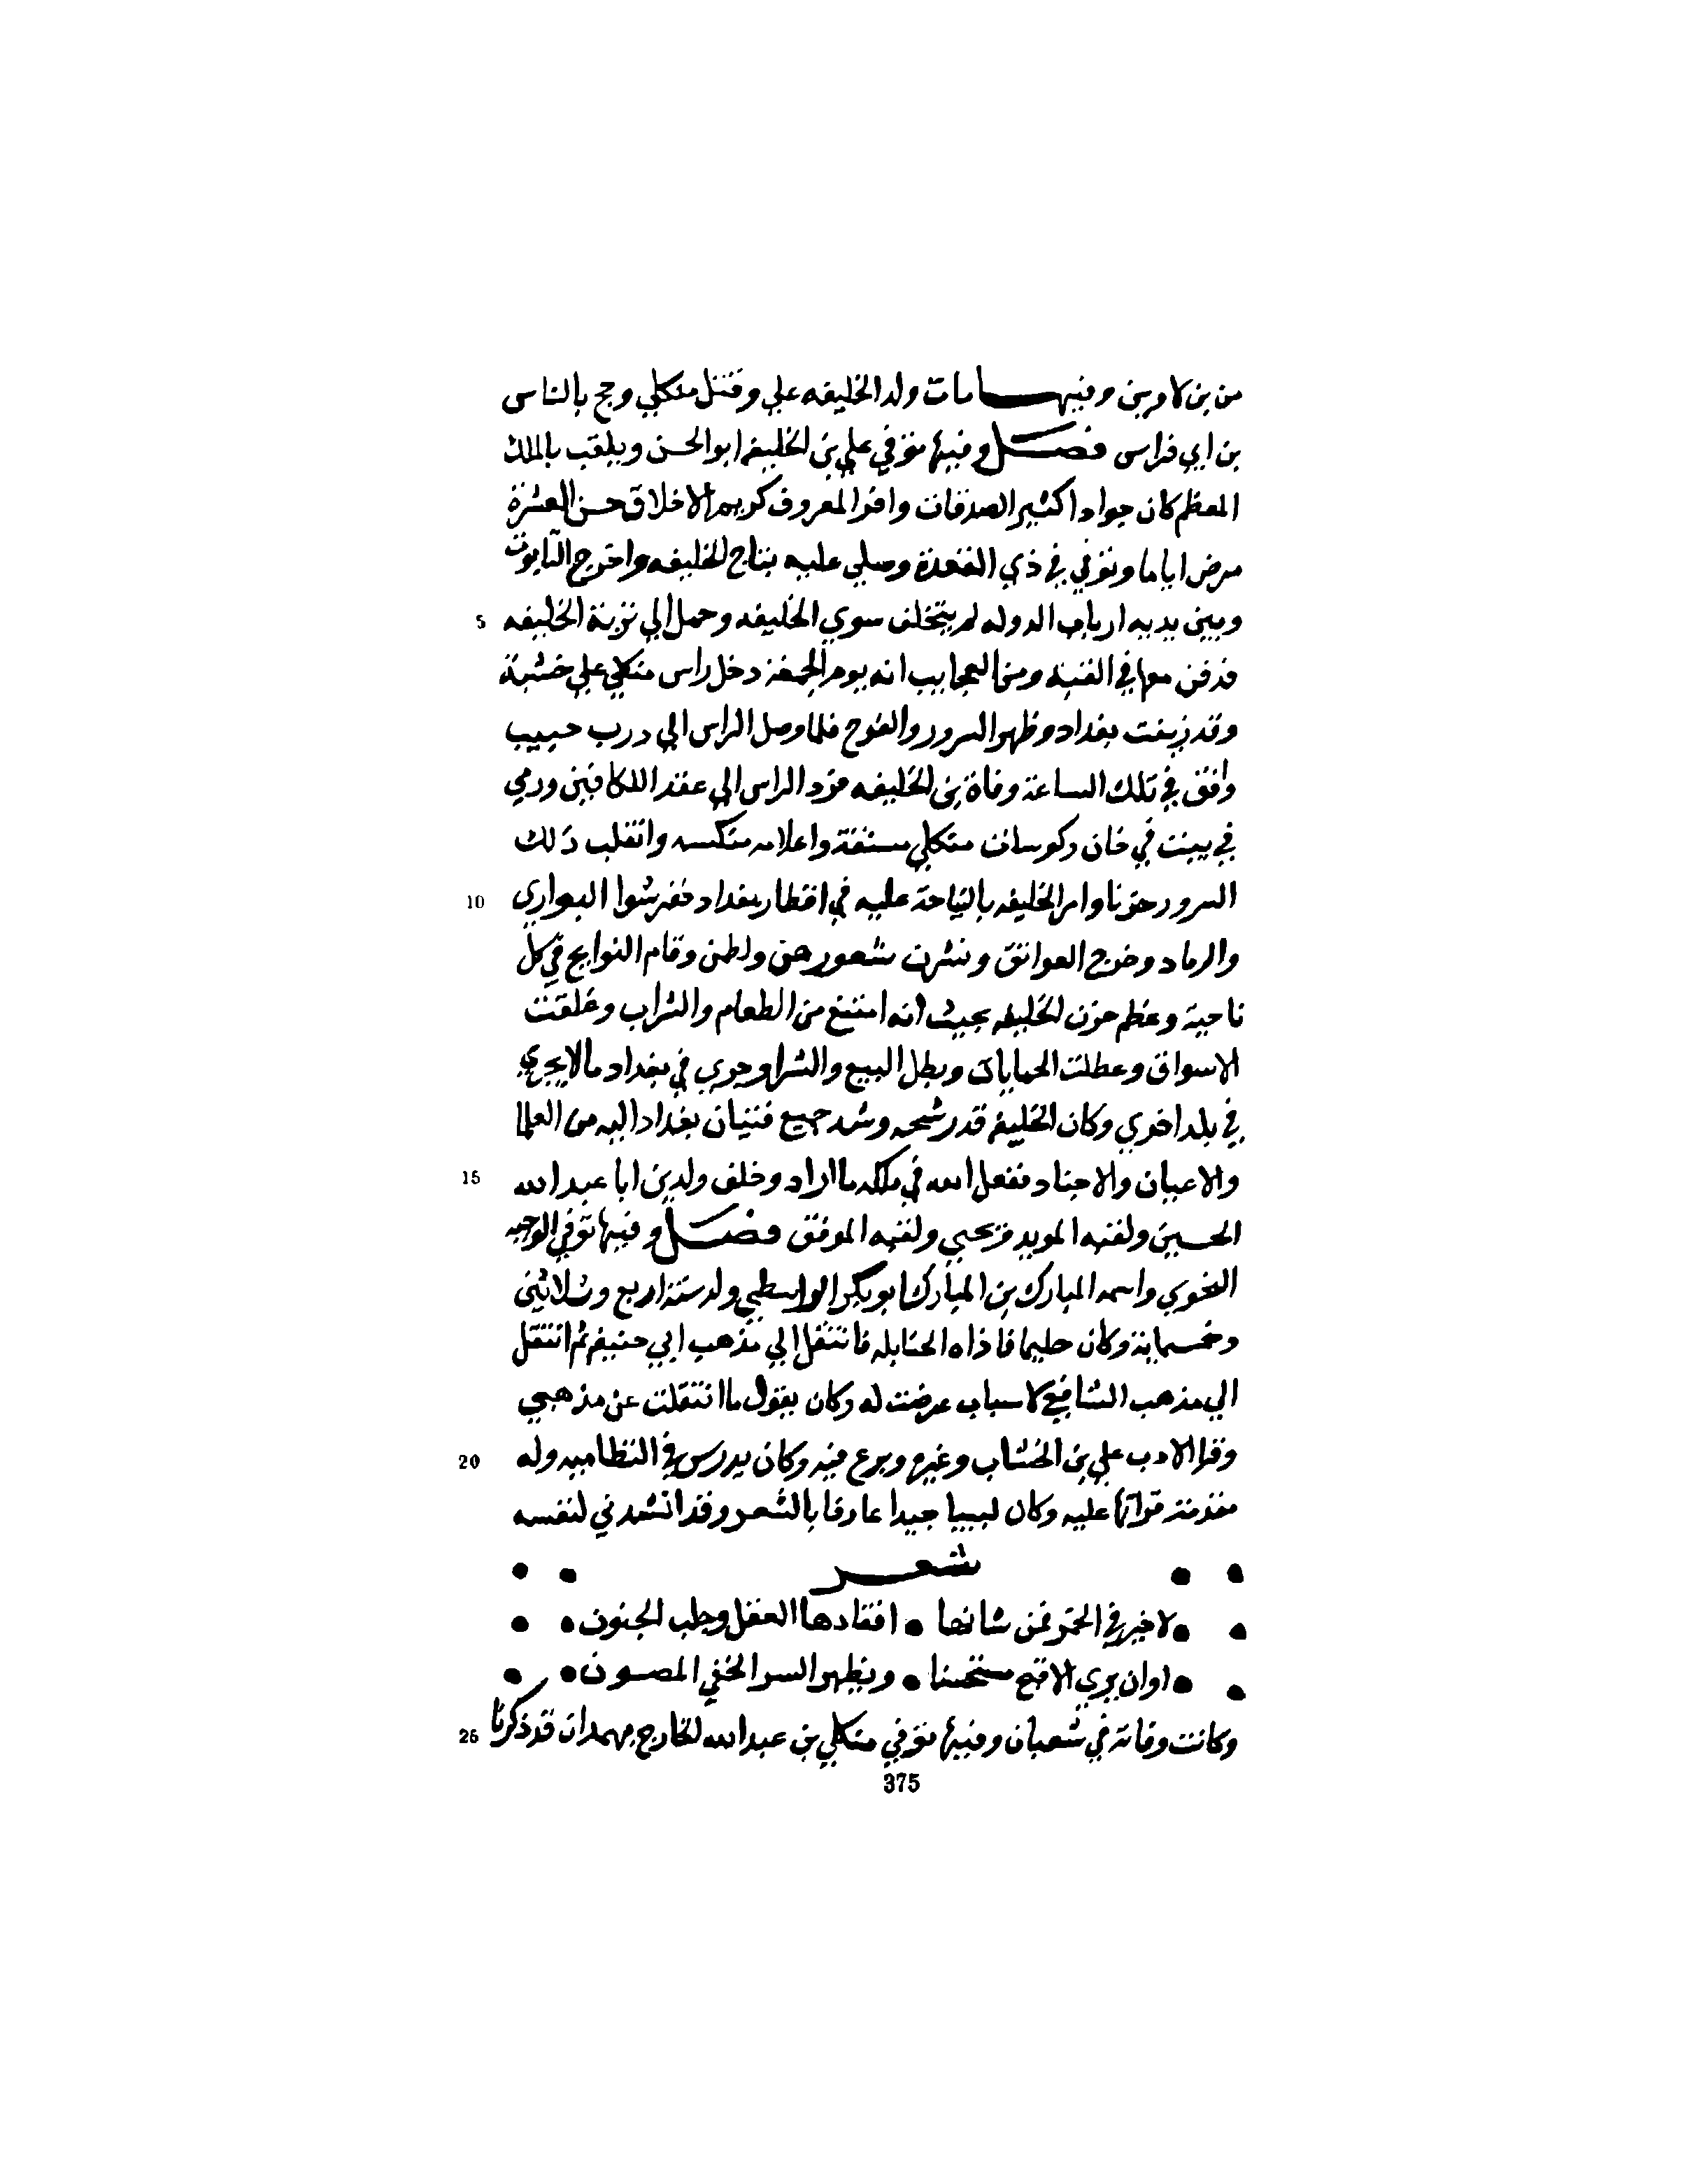 من بن لاوين وفيها مات ولد الخليفه علي وقتل منكلي وحج بالناس
بن ابي فراس فصل وفيها توفي علي بن الخليفه ابو الحسن ويلقب بالملك
المعظم كان جوادا كثير الصدقات وافر المعروف كريم الاخلاق حسن العشرة
مرض اياما وتوفي في ذي القعدة وصلي عليه بتاج الخليفه واخرج التابوت
وبين يديه ارباب الدوله لم يتخلف سوي الخليفه وحمل الي تربة الخليفه 5
فدفن معها في القبة ومن العجايب انه يوم الجمعة دخل راس منكلي علي خشبة
وقد زينت بغداد وظهر السرور والفرح فلما وصل الراس الي درب حبيب
وافق في تلك الساعة وفاة بن الخليفه فرد الراس الي عقد اللكافين ورمي
في بيت في خان وكوسات منكلي مشققة واعلامه منكسه وانقلب ذلك
السرور حزنا وامر الخليفه بالنياحة عليه في اقطار بغداد ففرشوا البواري 10
والرماد وخرج العواتق ونشرت شعورهن ولطمن وقام النوايح في كل
ناحية وعظم حزن الخليفه بحيث انه امتنع من الطعام والشراب وغلقت
الاسواق وعطلت الحمامات وبطل البيع والشرا وجري في بغداد مالا يجري
في بلد اخري وكان الخليفه قد رشحه وشد جميع فتيان بغداد اليه من العلما
والاعيان والاجناد ففعل الله في ملكه ما اراد وخلف ولدين ابا عبد الله 15
الحسين ولقبه المويد ويحيي ولقبه الموفق فصل وفيها توفي الوجيه
النحوي واسمه المبارك بن المبارك ابو بكر الواسطي ولد سنة اربع وثلاثين
وخمسماية وكان حليما فاذاه الحنابله فانتقل الي مذهب ابي حنيفه ثم انتقل
الي مذهب الشافعي لاسباب عرضت له وكان يقول ما انتقلت عن مذهبي
وقرا الادب علي بن الخشاب وغيره وبرع فيه وكان يدرس في النظاميه وله 20
مقدمة قراتها عليه وكان لبيبا جيدا عارفا بالشعر وقد انشدني لنفسه
شعر
لا خير في الخمر فمن شانها • افقادها العقل وجلب الجنون
او ان يري الاقبح مستحسنا • ويظهر السر الخفي المصون
وكانت وفاته في شعبان وفيها توفي منكلي بن عبد الله الخارج بهمدان قد ذكرنا 25
375